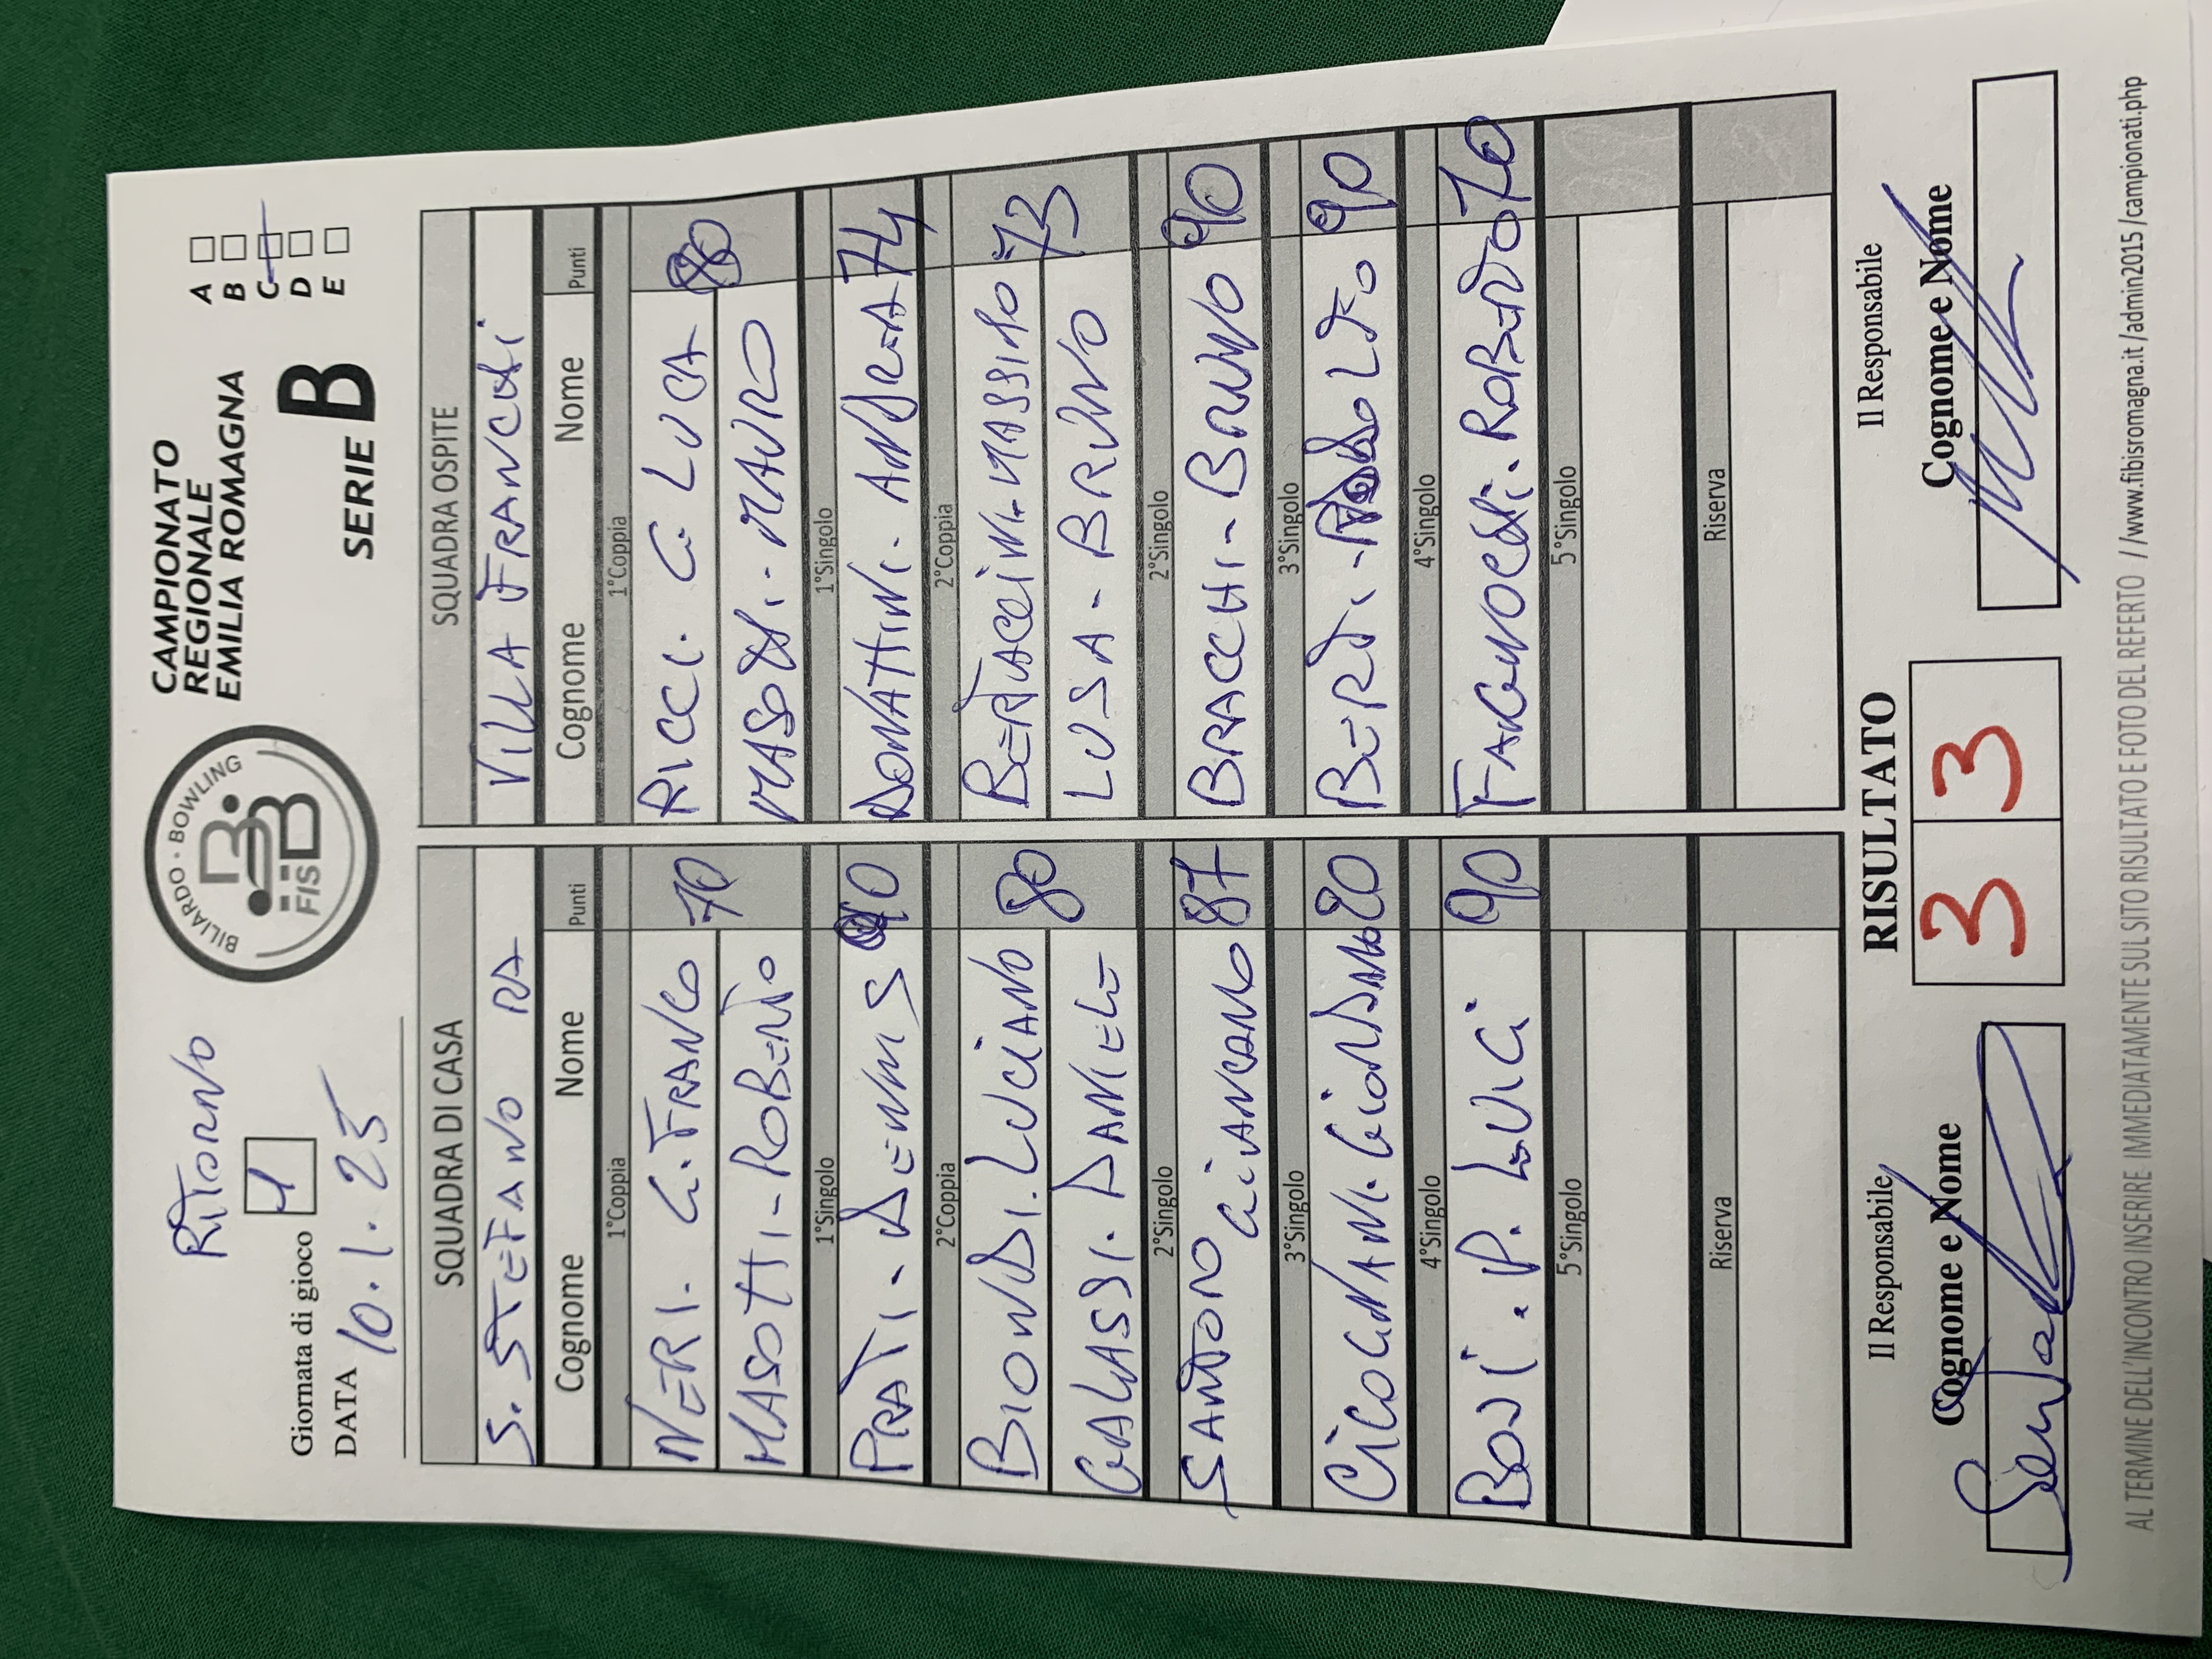 RITORNO
Giornata di gioco 1
DATA 10.1.25
BILIARDO · BOWLING
FISBB
CAMPIONATO
REGIONALE
EMILIA ROMAGNA
SERIE B
A
B
C
D
E
SQUADRA DI CASA
S. STEFANO RA
Cognome Nome Punti
1°Coppia
NERI. G. FRANCO 70
MASOTTI - ROBERTO
1°Singolo
PRATI - DENNIS 90
2°Coppia
BIONDI. LUCIANO 80
GALASSI. DANIELE
2°Singolo
SANTORO GIANCARLO 87
3°Singolo
CICOGNANI. GIORDANO 20
4°Singolo
BOSI. P. LUIGI 90
5°Singolo
Riserva
SQUADRA OSPITE
VILLA FRANCHI
Cognome Nome Punti
1°Coppia
RICCI. G. LUCA 80
MASOTTI - MAURO
1°Singolo
DONATTINI. ANDREA 74
2°Coppia
BERTACCINI - MASSIMO 73
LUSA - BRUNO
2°Singolo
BRACCHI - BRUNO 90
3°Singolo
BERTI - 90
4°Singolo
FAGNOCCHI. ROBERTO 70
5°Singolo
Riserva
Il Responsabile
Cognome e Nome
RISULTATO
3 3
Il Responsabile
Cognome e Nome
AL TERMINE DELL'INCONTRO INSERIRE IMMEDIATAMENTE SUL SITO RISULTATO E FOTO DEL REFERTO //www.fibisromagna.it/admin2015/campionati.php